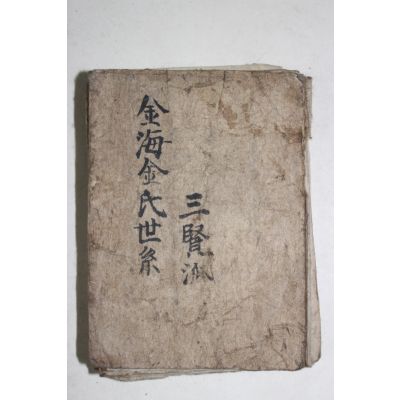 金海金氏世系
三賢派